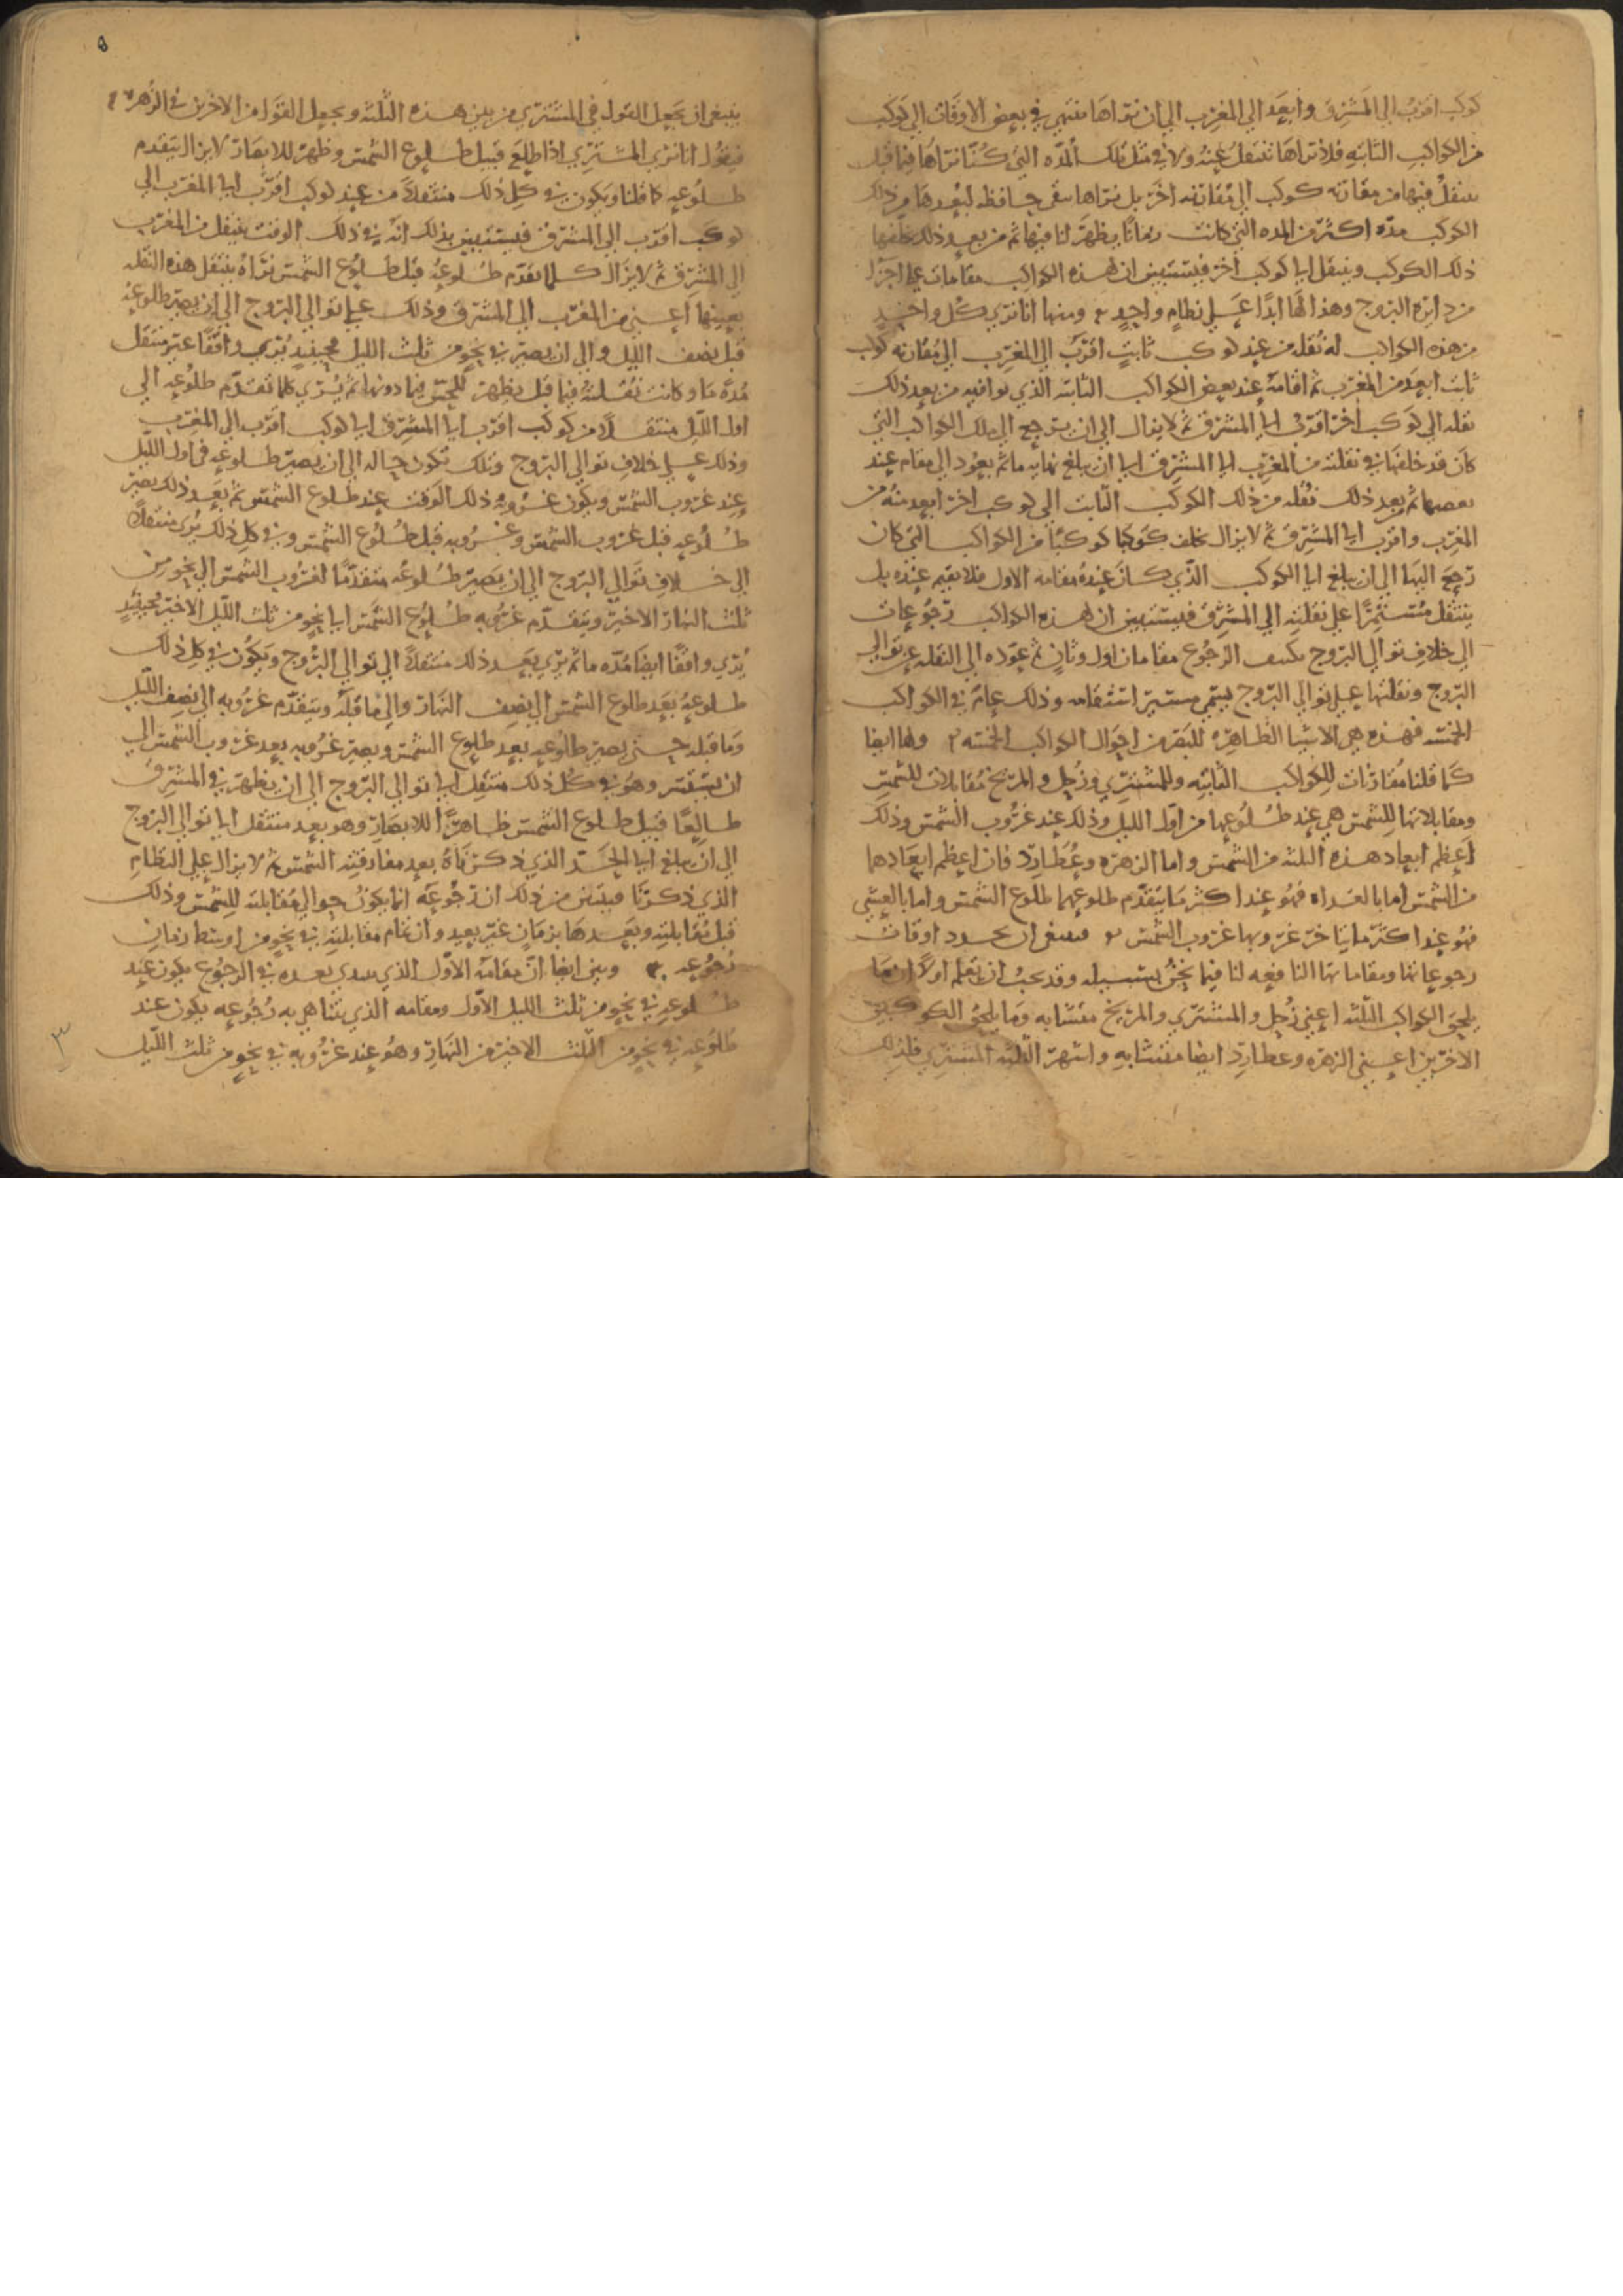 كوكب اقرب الي المشرق وابعد الي المغرب الي ان نراها تنتهي في بعض الاوقات الي كوكب
من الكواكب الثابته فلا نراها تنتقل عنه ولا في مثل تلك المده التي كنا نراها فيما قبل
تنتقل فيها من مقارنه كوكب الي مقارنه اخر بل نراها تبقي حافظه لبعدها من ذلك
الكوكب مده اكثر من المده التي كانت زمانا يظهر لنا فيها ثم من بعد ذلك تخلفها
ذلك الكوكب وينتقل الي كوكب اخر فيستبين ان لهذه الكواكب مقامات علي اجزا
من دايره البروج وهذا لها ابدا علي نظام واحد ومنها انا نري كل واحد
من هذه الكواكب له نقله من عند كوكب ثابت اقرب الي المغرب الي مقارنه كوكب
ثابت ابعد من المغرب ثم اقامه عند بعض الكواكب الثابته الذي توافيه من بعد ذلك
نقله الي كوكب اخر اقرب الي المشرق ثم لا يزال الي ان يرجع الي تلك الكواكب التي
كان قد خلفها في نقلته من المغرب الي المشرق الي ان يبلغ نهايه ما ثم يعود الي مقام عند
بعضها ثم بعد ذلك نقله من ذلك الكوكب الثابت الي كوكب اخر ابعد منه من
المغرب واقرب الي المشرق ثم لا يزال يخلف كوكبا كوكبا من الكواكب التي كان
رجع اليها الي ان يبلغ الي الكوكب الذي كان عنده مقامه الاول فلا يقيم عنده بل
ينتقل مستمرا علي نقلته الي المشرق فيستبين ان لهذه الكواكب رجوعات
الي خلاف توالي البروج يكنف الرجوع مقامان اول وثان ثم عوده الي النقله علي توالي
البروج ونقلتها علي توالي البروج يسمي مسير استقامه وذلك عام في الكواكب
الخمسه فهذه هي الاشيا الظاهره للبصر من احوال الكواكب الخمسه ولها ايضا
كما قلنا مقارنات للكواكب الثابته وللمشتري وزحل والمريخ مقابلات للشمس
ومقابلاتها للشمس هي عند طلوعها من اول الليل وذلك عند غروب الشمس وذلك
اعظم ابعاد هذه الثلثه من الشمس واما الزهره وعطارد فان اعظم ابعادهما
من الشمس اما بالغداه فهو عند اكثر ما يتقدم طلوعهما طلوع الشمس واما بالعشي
فهو عند اكثر ما يتاخر غروبهما غروب الشمس فينبغي ان نحدد اوقات
رجوعاتها ومقاماتها النافعه لنا فيما نحن بسبيله وقد يجب ان نعلم اولا ان ما
يلحق الكواكب الثلثه اعني زحل والمشتري والمريخ متشابه وما يلحق الكوكبين
الاخرين اعني الزهره وعطارد ايضا متشابه واشهر الثلثه المشتري فلذلك
ينبغي ان نجعل القول في المشتري من بين هذه الثلثه ونجعل القول من الاخرين في الزهره
فنقول انا نري المشتري اذا طلع قبيل طلوع الشمس وظهر للابصار لا يزال يتقدم
طلوعه كما قلنا ويكون في كل ذلك منتقلا من عند كوكب اقرب الي المغرب الي
كوكب اقرب الي المشرق فيستبين بذلك انه في ذلك الوقت ينتقل من المغرب
الي المشرق ثم لا يزال كلما تقدم طلوعه قبل طلوع الشمس نراه ينتقل هذه النقله
بعينها اعني من المغرب الي المشرق وذلك علي توالي البروج الي ان يصير طلوعه
قبل نصف الليل والي ان يصير في نحو من ثلث الليل فحينيذ يري واقفا غير منتقل
مده ما وكانت نقلته فيما قبل يظهر للحس فيما دونها ثم يري كلما تقدم طلوعه الي
اول الليل منتقلا من كوكب اقرب الي المشرق الي كوكب اقرب الي المغرب
وذلك علي خلاف توالي البروج وتلك تكون حاله الي ان يصير طلوعه في اول الليل
عند غروب الشمس ويكون غروبه ذلك الوقت عند طلوع الشمس ثم بعد ذلك يصير
طلوعه قبل غروب الشمس وغروبه قبل طلوع الشمس وفي كل ذلك يري منتقلا
الي خلاف توالي البروج الي ان يصير طلوعه متقدما لغروب الشمس الي نحو من
ثلث النهار الاخير ويتقدم غروبه طلوع الشمس الي نحو من ثلث الليل الاخير فحينيذ
يري واقفا ايضا مده ما ثم يري بعد ذلك منتقلا الي توالي البروج ويكون في كل ذلك
طلوعه بعد طلوع الشمس الي نصف النهار والي ما قبله ويتقدم غروبه الي نصف الليل
وما قبله حتي يصير طلوعه بعد طلوع الشمس ويصير غروبه بعد غروب الشمس الي
ان يستتر وهو في كل ذلك منتقل الي توالي البروج الي ان يظهر في المشرق
طالعا قبيل طلوع الشمس ظاهرا للابصار وهو بعد منتقل الي توالي البروج
الي ان يبلغ الي الحد الذي ذكرناه بعد مفارقته الشمس ثم لا يزال علي النظام
الذي ذكرنا فيتبين من ذلك ان رجوعه انما يكون حوالي مقابلته للشمس وذلك
قبل مقابلته وبعدها بزمان غير بعيد وان تمام مقابلته في نحو من اوسط زمان
رجوعه وبين ايضا ان مقامه الاول الذي يبتدي بعده في الرجوع يكون عند
طلوعه في نحو من ثلث الليل الاول ومقامه الذي يتناهي به رجوعه يكون عند
طلوعه في نحو من الثلث الاخير من النهار وهو عند غروبه في نحو من ثلث الليل